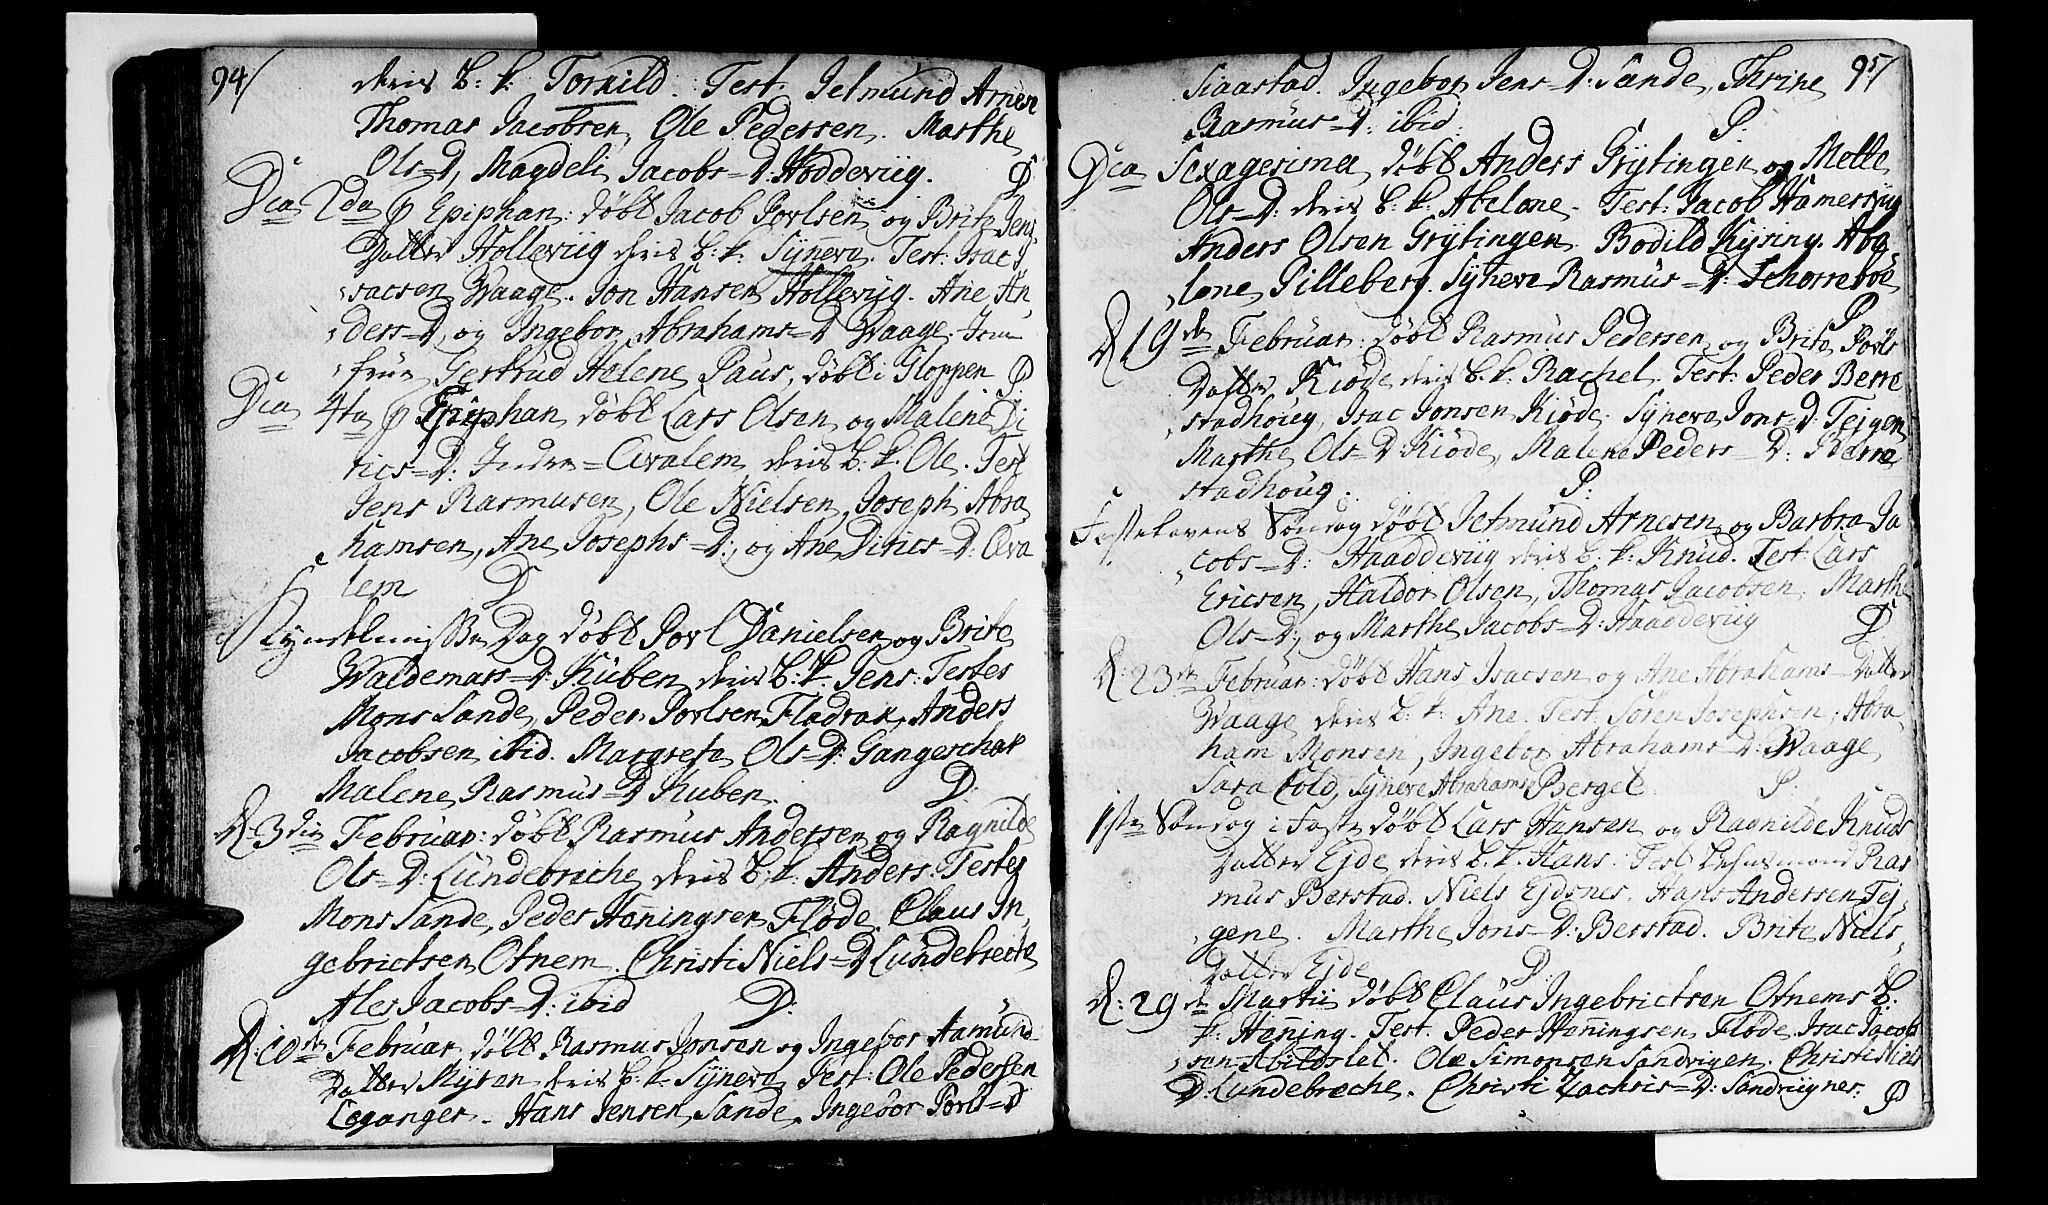 94/
deris B: k: Tornild. Test. Jetmund Arnesen
Thomas Jacobsen, Ole Pedersen. Marthe
Ols=D, Magdeli Jacobs=D: Hoddeviig. P
Dca 2da p Epiphan: döbt Jacob Povlsen og Brite Jens
Datter Holleviig deris B: k: Syneva. Test: Isac I
sacsen Waage. Jon Hansen Hollevyg. Ane An
ders=D, og Ingebor Abrahams=D Waage. Jom
frue Gertrud Helene Paus, döbt i Gloppen P
Dca 4ta p Epiphan döbt Lars Olsen og Malene Di
rics=D: Indre=Avalem deris B: k: Ole. Test
Jens Rasmusen, Ole Nielsen, Joseph Abra
hamsen, Ane Josephs=D:, og Ane Dirics=D: Ava
lem P
Kyndelmisse Dag döbt Povl Danielsen og Brite
Waldemars=D: Kuben deris B: k: Jens: Testes
Mons Sande, Peder Povlsen Fladrax, Anders
Jacobsen ibid. Margrete Ols=D: Gangeschar
Malene Rasmus=D Kuben. P
d: 3die Februar: döbt Rasmus Andersen og Ragnilde
Ols=D: Lundebreche deris B: k: Anders: Testes
Mons Sande, Peder Heningsen Flöde. Claus In
gebrictsen Otnem. Christi Niels=D Lundebreche
Ales Jacobs=D: ibid P:
d: 10de Februar döbt Rasmus Jonsen og Ingebor Aamund
Datter Ryten deris B: k: Syneva Test: Ole Pedersen
Leganger. Hans Jensen Sande, Ingebor Povls=D
95/
Siaastad. Ingebor Jens=D: Sande, Thrine
Rasmus=D: ibid. P:
Dca Sexagesimæ döbt Anders Grytingen og Mette
Ols=D: deris B: k: Abelone. Test: Jacob Hamersvyg
Anders Olsen Grytingen. Bodild Rysing. Abe
lone Pilleberg. Syneve Rasmus=D: Schorreböe
P
d 19de Februar: döbt Rasmus Pedersen og Brite Povls
Datter Kiöde deris B: k: Rachel. Test: Peder Berre
stadhoug, Isac Jonsen Kiöde. Syneva Jons=D: Tejgen
Marthe Ols=D: Kiöde, Malene Peders=D: Berre
stadhoug. P:
Fastelavens Söndag döbt Jetmund Arnesen og Barbra Ja
cobs=D: Haaddeviig deris B: k: Knud. Test Lars
Ericsen, Haldor Olsen, Thomas Jacobsen, Marthe
Ols=D:, og Marthe Jacobs=D: Haaddeviig P
d: 23de Februar: döbt Hans Isacsen og Ane Abrahams=Datter
Waage deris B: k: Ane. Test. Sören Josephsen, Abra
ham Monsen, Ingebor Abrahams=D: Waage
Sara Cold, Syneve Abrahams Berget P:
1ste Söndag i Faste döbt Lars Hansen og Ragnilde Knuds
Datter Ejde deris B: k: Hans. Test Lehnsmand Ras
mus Berstad. Niels Ejdsnes. Hans Andersen Tej
gene. Marthe Jons=D: Berstad. Brite Niels
Datter Ejde P:
d: 29de Martii döbt Claus Ingebrictsen Otnems B.
k: Hening. Test. Peder Heningsen Flöde. Isac Jacob
sen Abildslet. Ole Simonsen Sandvigen. Christi Niels
D: Lundebreche. Christi Zachris=D: Sandviignes: P